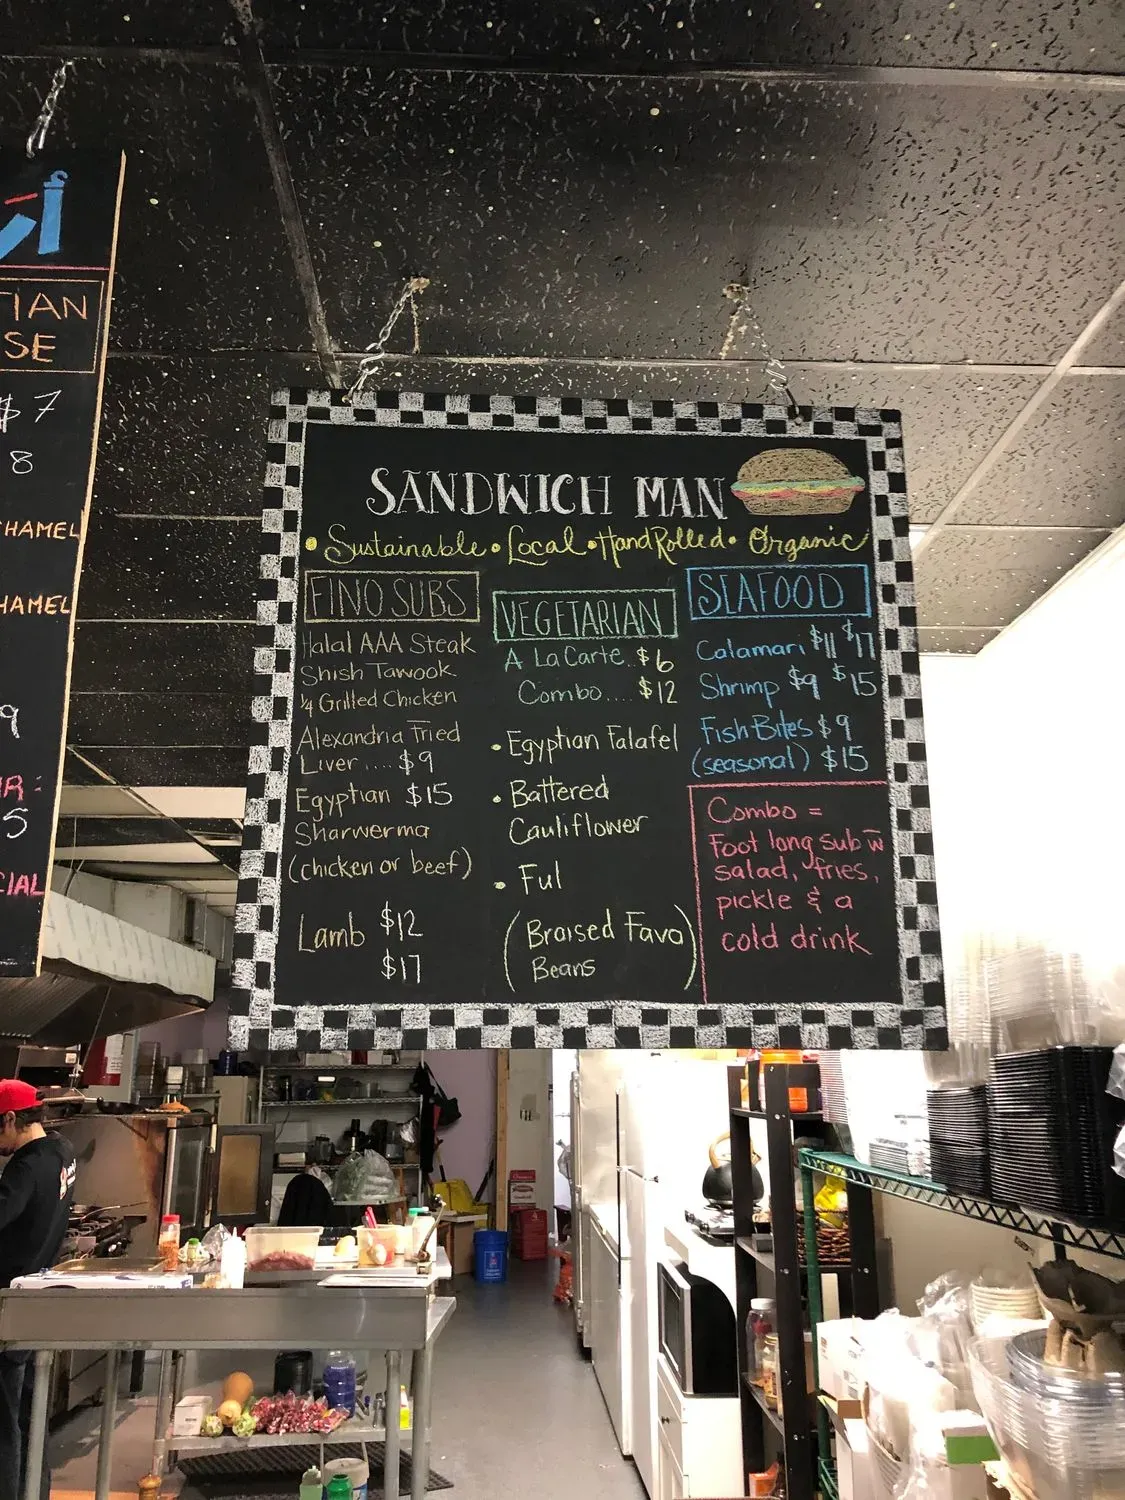 TIAN
SE
$7
8
HAMEL
HAMEL
9
R:
5
CIAL
SANDWICH MAN
• Sustainable • Local • Hand Rolled • Organic
FINO SUBS
Halal AAA Steak
Shish Tawook
¼ Grilled Chicken
Alexandria Fried
Liver .... $9
Egyptian $15
Sharwerma
(chicken or beef)
Lamb $12
$17
VEGETARIAN
A La Carte.. $6
Combo.... $12
• Egyptian Falafel
• Battered
Cauliflower
• Ful
(Braised Fava
Beans)
SEAFOOD
Calamari $11 $17
Shrimp $9 $15
Fish Bites $9
(seasonal) $15
Combo =
Foot long sub w̄
salad, fries,
pickle & a
cold drink